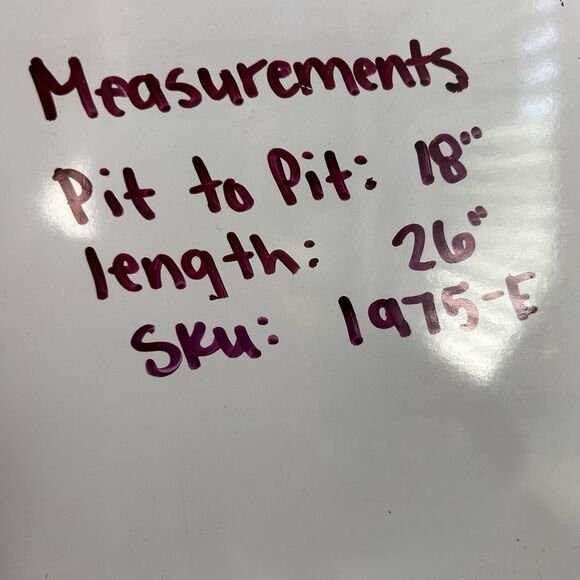 Measurements
Pit to Pit: 18"
length: 26"
Sku: 1975-E